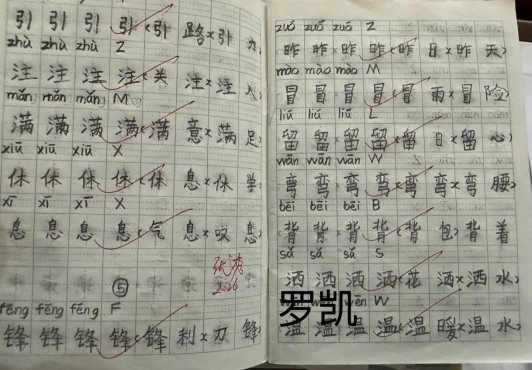 引 引 引 引(引 路)(引 力)
zhù zhù zhù Z
注 注 注 注(关 注)(注 入)
mǎn mǎn mǎn M
满 满 满 满(满 意)(满 足)
xiū xiū xiū X
休 休 休 休(休 息)(休 学)
xī xī xī X
息 息 息 息(气 息)(叹 息)
⑤
2.26
fēng fēng fēng F
锋 锋 锋 锋(锋 利)(刀 锋)
zuó zuó zuó Z
昨 昨 昨 昨(昨 日)(昨 天)
mào mào mào M
冒 冒 冒 冒(冒 雨)(冒 险)
liú liú liú L
留 留 留 留(留 日)(留 心)
wān wān wān W
弯 弯 弯 弯(弯 弯)(弯 腰)
bēi bēi bēi B
背 背 背 背(背 包)(背 着)
sǎ sǎ sǎ S
洒 洒 洒 洒(花 洒)(洒 水)
wēn W
罗凯
温 温 温 温(温 暖)(温 水)